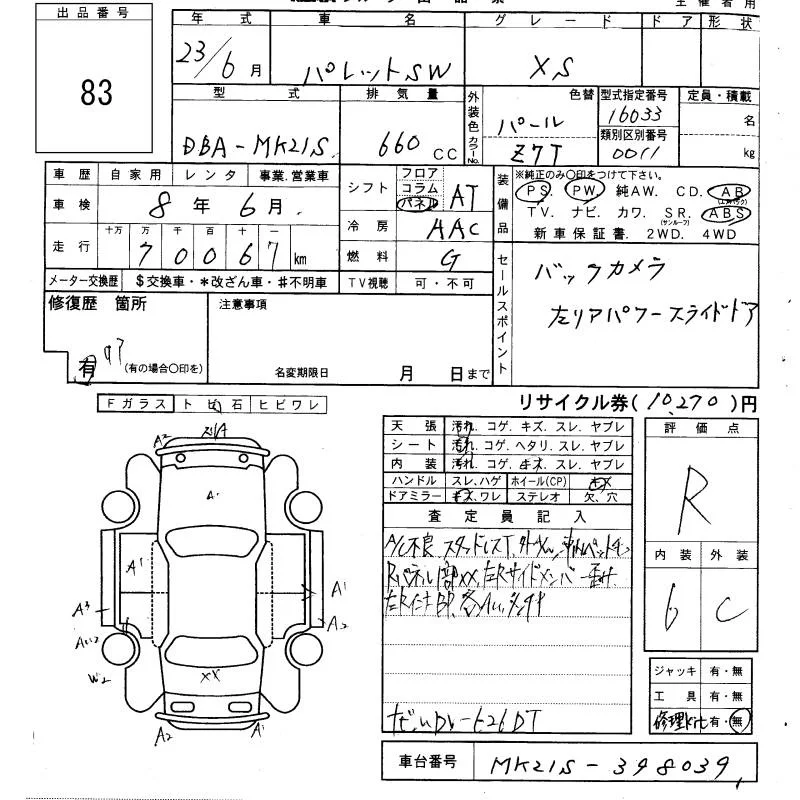 出品番号
83
年式 車名 グレード ドア 形状
23/6月 パレットSW XS
型式 排気量 外装色 カラーNo. 色替 型式指定番号 定員・積載
DBA-MK21S 660 CC パール Z7T 16033 名
類別区別番号 0011 kg
車歴 自家用 レンタ 事業.営業車
車検 8年6月.
走行 十万 万 千 百 十 一
70067 km
メーター交換歴 $交換車・*改ざん車・♯不明車
シフト フロア コラム パネル AT
冷房 AAC
燃料 G
TV視聴 可・不可
装備品 ※純正のみ○印をつけて下さい。
PS. PW. 純AW. CD. AB (エアバック)
TV. ナビ. カワ. SR. (サンルーフ) ABS
新車保証書. 2WD. 4WD
セールスポイント
バックカメラ
左リアパワースライドドア
修復歴 箇所
有 (有の場合○印を)
注意事項
名変期限日 月 日まで
リサイクル券(10,270)円
Fガラス トビ石 ヒビワレ
天張 汚れ. コゲ. キズ. スレ. ヤブレ
シート 汚れ. コゲ. ヘタリ. スレ. ヤブレ
内装 汚れ. コゲ. キズ. スレ. ヤブレ
ハンドル スレ.ハゲ ホイール(CP) キズ
ドアミラー キズ.ワレ ステレオ 欠.穴
評価点
R
内装 外装
6 C
査定員記入
A/C不良 スタッドレスT
A2 A1
A1 A1
A3 A2
W2
XX
A2 A1
ジャッキ 有・無
工具 有・無
修理kit 有・無
車台番号 MK21S-398039